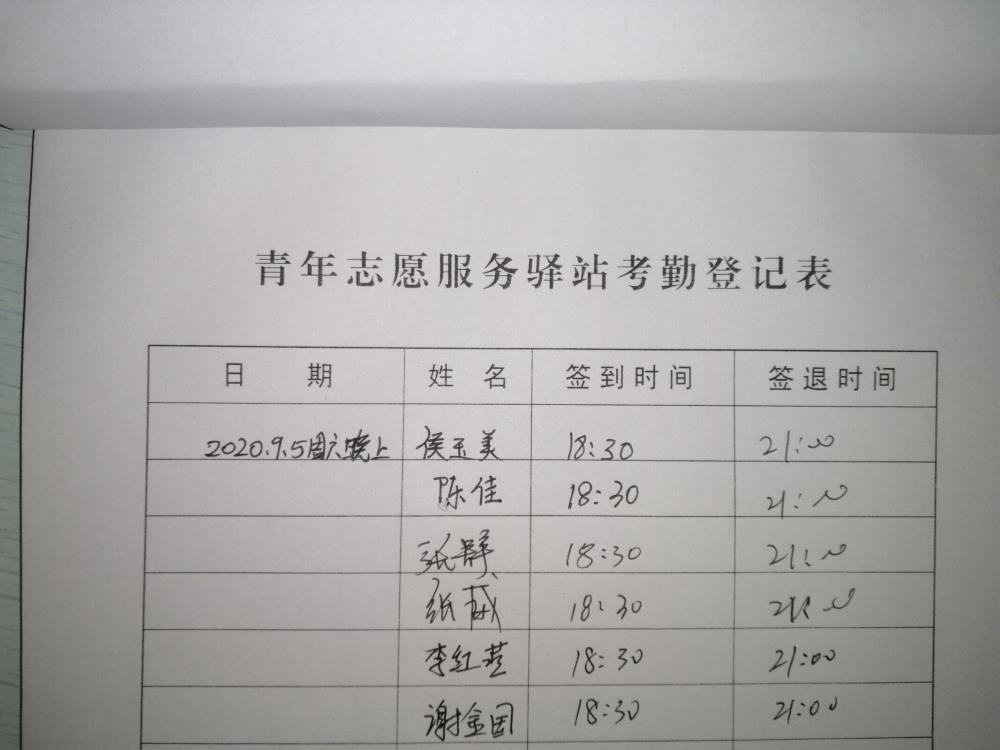 青年志愿服务驿站考勤登记表
日 期 姓 名 签到时间 签退时间
2020.9.5周六晚上 侯玉美 18:30 21:00
陈佳 18:30 21:00
张群 18:30 21:00
18:30 21:00
李红燕 18:30 21:00
谢金国 18:30 21:00